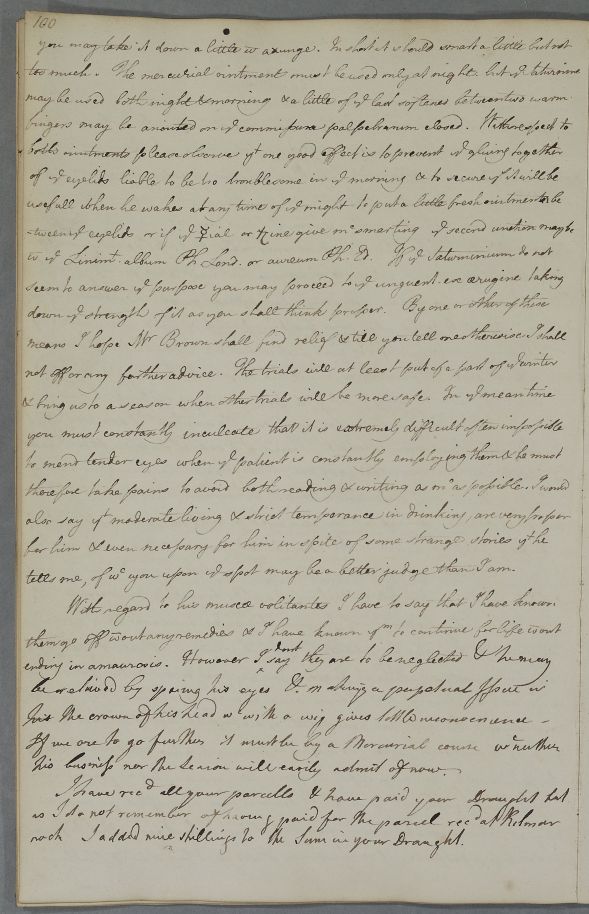 160
you may take it down a little w axunge. In short it should smart a little but not
too much. The mercurial ointment must be used only at night but ye saturnine
may be used both night & morning & a little of ye last softened between two warm
fingers may be anointed on ye commissura palpebrarum closed. With respect to
both ointments please observe yt one good effect is to prevent ye gluing together
of ye eyelids liable to be too troublesome in ye morning & to secure ys it will be
usefull when he wakes at any time of ye night to put a little fresh ointment be
-tween ye eyelids or if ye ☿ial or ♄ine give mh smarting ye second unction may be
w ye Linimt. album Ph. Lond. or aureum Ph. Ed. If ye saturninum do not
seem to answer ye purpose you may proceed to ye unguent. ex ærugine taking
down ye strength of it as you shall think proper. By one or other of these
means I hope Mr Brown shall find relief & till you tell me otherwise I shall
not offer any further advice. The trials will at least put off a part of ye winter
& bring us to a season when other trials will be more safe. In ye mean time
you must constantly inculcate that it is extremely difficult often impossible
to mend tender eyes when ye patient is constantly employing them & he must
therefore take pains to avoid both reading & writing as mh as possible. I would
also say yt moderate living & strict temperance in drinking, are very proper
for him & even necessary for him in spite of some strange stories yt he
tells me, of wh you upon ye spot may be a better judge than I am.
With regard to his muscæ volitantes I have to say that I have known
them go off wtout any remedies & I have known ym to continue for life wtout
ending in amaurosis. However I dont say they are to be neglected & he may
be relieved by sparing his eyes & making a perpetual Issue in
the crown of his head wh with a wig gives little inconvenience -
If we are to go further it must be by a Mercurial course wh neither
his business nor the season will easily admit of now.
I have recd all your parcells & have paid your Draught but
as I do not remember of having paid for the parcel recd at Kilmar
nock I added nine shillings to the Sum in your Draught.